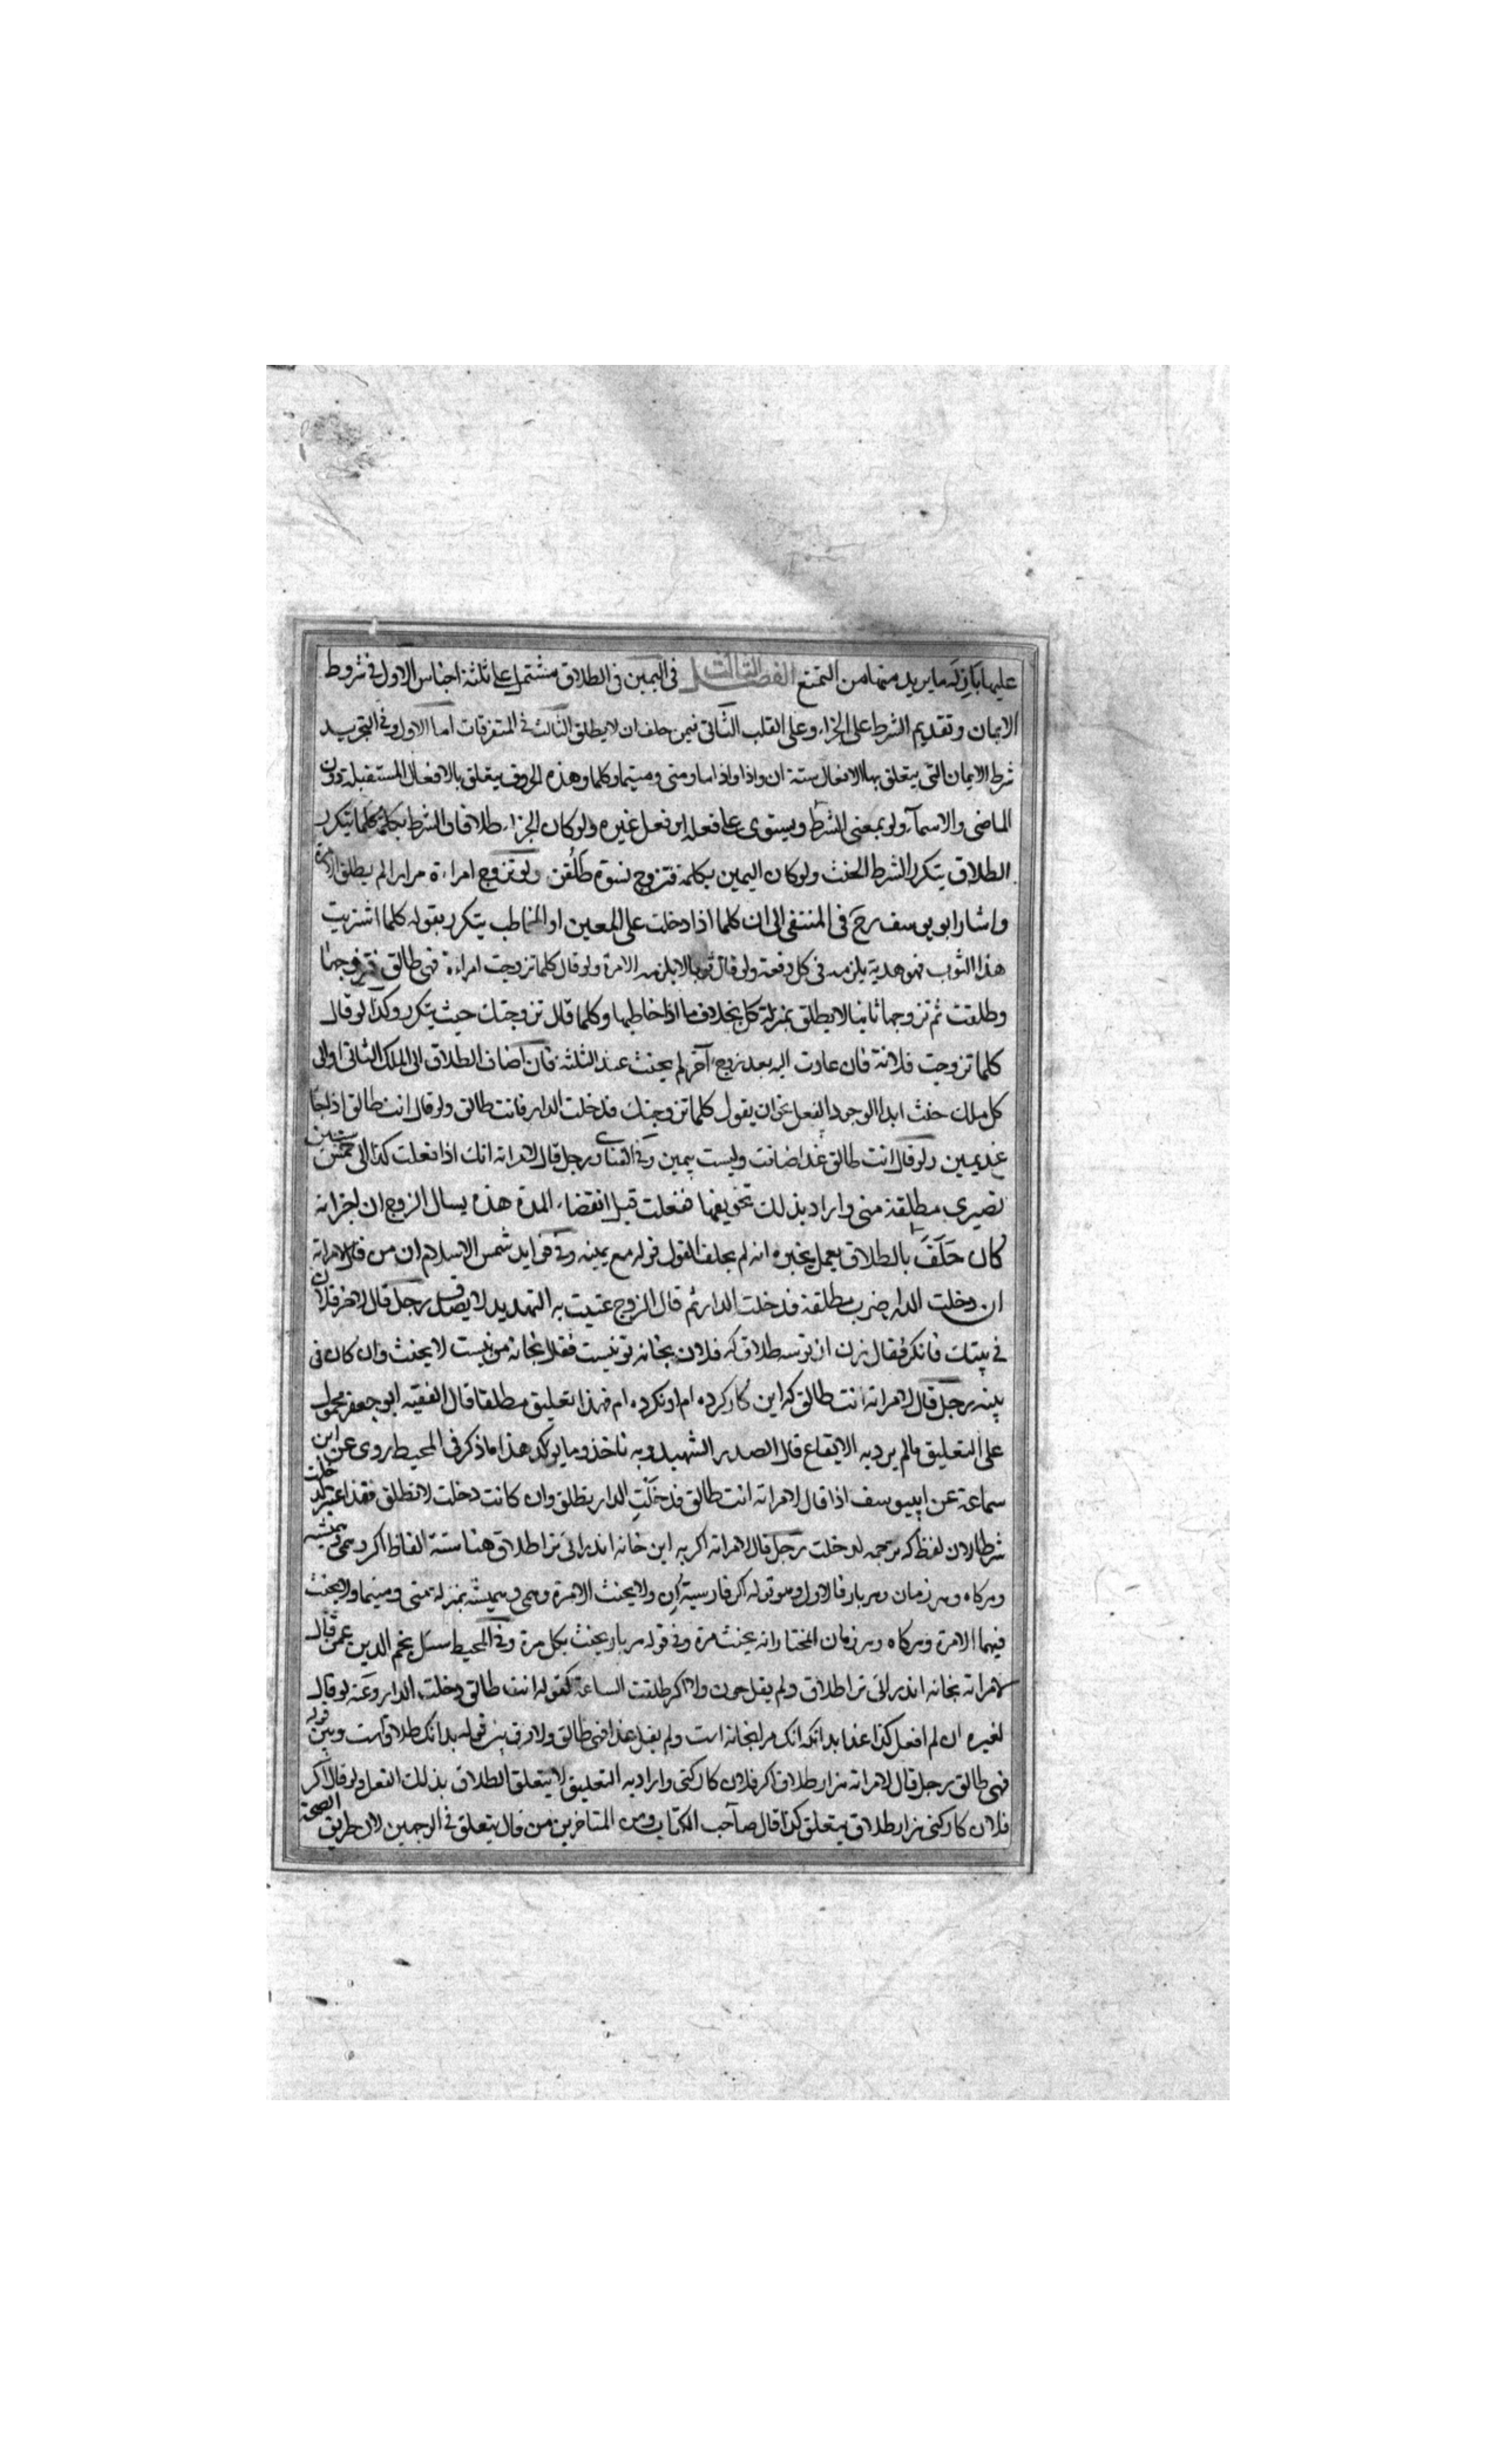 عليها باقر له ما يريد منها من التمتع الفصل الثالث فى اليمين فى الطلاق مشتمل على ثلثة اجناس الاول فى شروط
الايمان وتقديم الشرط على الجزاء وعلى القلب الثانى فيمن حلف ان لا يطلق الثالث فى المتفرقات اما الاول وفى التجريد
شرط الايمان التى يتعلق بها الافعال ستة ان واذا واذا ما ومتى ومتيما وكلما وهذه الحروف يتعلق بالافعال المستقبلة دون
الماضى والاسماء ولو بمعنى الشرط ويستوى على فعله او فعل غيره ولو كان الجزاء طلاقا والشرط بكلمة كلما يتكرر
الطلاق بتكرر الشرط الحنث ولو كان اليمين بكلمة فتزوج نسوة طلقن ولو تزوج امراءة مرارا لم يطلق الا مرة
واشار ابو يوسف رح فى المنتقى الى ان كلما اذا دخلت على المعين او المخاطب يتكرر بقوله كلما اشتريت
هذا الثوب فهو هدية يلزمه فى كل دفعة ولو قال ثوبا لا يلزمه الا مرة ولو قال كلما تزوجت امراءة فهى طالق فتزوجها
وطلقت ثم تزوجها ثانيا لا يطلق بمنزلة كل بخلاف ما اذا خاطبها وكلما قال تزوجتك حيث يتكرر وكذا لو قال
كلما تزوجت فلانة فان عادت اليه بعد زوج آخر لم يحنث عند الثلثة فان اضاف الطلاق الى الملك الثانى او الى
كل ملك حنث ابدا لوجود الفعل نحو ان يقول كلما تزوجتك فدخلت الدار فانت طالق ولو قال انت طالق اذا جا
غد يمين ولو قال انت طالق غدا اضافت وليست بيمين وفى الفتاوى رجل قال لامراته انك اذا فعلت كذا الى خمس سنين
تصيرى مطلقة منى واراد بذلك تخويفها ففعلت قبل انقضاء المدة هذه يسال الزوج ان اخبر انه
كان حلف بالطلاق يعمل بخبره انه لم يحلف القول قوله مع يمينه وفى فوايد شمس الاسلام ان من قال لامراته
ان دخلت الدار صرت مطلقة فدخلت الدار ثم قال الزوج عنيت به التهديد لا يصدق رجل قال لاخر فلان
فى بيتك فانكر فقال زن از تو سه طلاق كه فلان بخانه تو نيست فقال بخانه من نيست لا يحنث وان كان فى
بيته رجل قال لامراته انت طالق كه اين كار كرده ام او نكرده ام فهذا تعليق مطلقا قال الفقيه ابو جعفر محمول
على التعليق مالم يرد به الايقاع قال الصدر الشهيد وبه ناخذ وما يوكد هذا ما ذكر فى المحيط روى عن ابن
سماعة عن ابييوسف اذا قال لامراته انت طالق قد دخلت الدار يطلق وان كانت دخلت لا تطلق فقد اعتبر لدخلت
شرطا لان لفظ كه ترجمه لدخلت رجل قال لامراته اكر به اين خانه اندر ائى ترا طلاق هنا ستة الفاظ اكر وهمى وهميشه
وهركاه وهر زمان وهر بار فالاول وهو قوله اكر فارسية ان ولا يحنث الا مرة وهمى وهميشه بمنزله متى ومتيما ولا يحنث
فيهما الا مرة وهركاه وهر زمان المختار انه يحنث مرة وفى قوله هر بار يحنث بكل مرة وفى المحيط سئل نجم الدين عمن قال
لامراته بخانه اندر ائى ترا طلاق ولم يقل جون ولا اكر طلقت الساعة كقوله انت طالق دخلت الدار وعنه لو قال
لغيره ان لم افعل كذا غدا بدانكه انك مرا بخانه است ولم يفعل غدا فهى طالق ولا فرق بين قوله بدانكه طلاق است وبين قوله
فهى طالق رجل قال لامراته هزار طلاق اكر فلان كار كنى واراد به التعليق لا يتعلق الطلاق بذلك الفعل ولو قال اكر
فلان كار كنى هزار طلاق يتعلق كذا قال صاحب الكتاب ومن المتاخرين من قال يتعلق فى الوجهين لان طريق الصحة